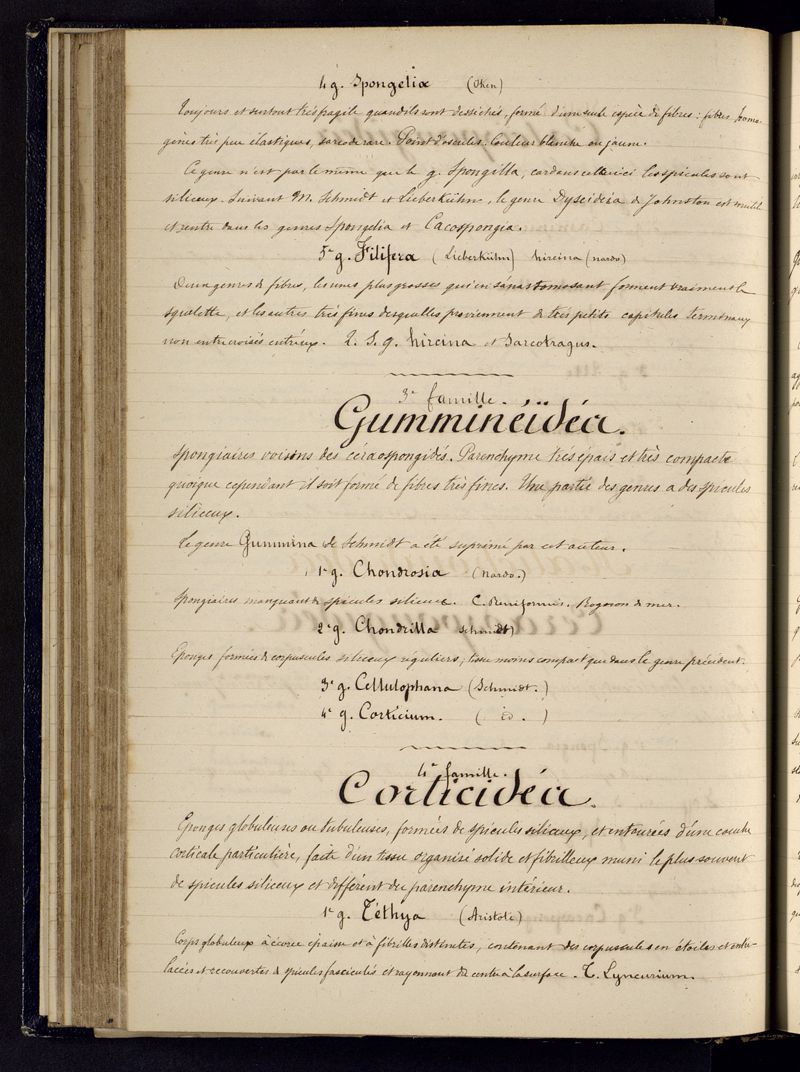 4 g. Spongelia (Oken)
Toujours et surtout très fragile quand ils sont dessechés, formé d'une seule espèce de fibres : fibres homo-
gènes très peu élastiques, sarcode rare. Point d'oscules. Couleur blanche ou jaune.
Ce genre n'est pas le même que le g. Spongilla, car dans celle ici les spicules sont
siliceux. Suivant M. Schmidt et Lieberkühn, le genre Dyseideia de Johnston est inutile
et rentre dans les genres Spongelia et Cacospongia.
5e g. Filifera (Lieberkühn) hircina (nardo)
Deux genres de fibres, les unes plus grosses qui en s'anastomosant forment vraiment le
squelette, et les autres très fines desquelles proviennent de très petits capitules terminaux
non entrecroisés entr'eux. 2. S. g. hircina et Sarcotragus.
3e famille.
Gumminéïdéa.
Spongiaires voisins des céraospongidés. Parenchyme très épais et très compacte
quoique cependant il soit formé de fibres très fines. Une partie des genres a des spicules
siliceux.
Le genre Gummina de Schmidt a été suprimé par cet auteur.
1e g. Chondrosia (Nardo.)
Spongiaires manquant de spicules siliceux. C. Reniformis. Rognon de mer.
2e g. Chondrilla Schmidt)
Eponges formées de corpuscules siliceux réguliers; tissu moins compact que dans le genre précédent.
3e g. Cellulophana (Schmidt.)
4e g. Corticium. ( id. )
4e famille.
Corticidéa.
Eponges globuleuses ou tubuleuses, formées de spicules siliceux, et entourées d'une couche
corticale particulière, faite d'un tissu organisé solide et fibrilleux muni le plus souvent
de spicules siliceux et différent du parenchyme intérieur.
1e g. Téthya (Aristote)
Corps globuleux à écorce épaisse et à fibrilles distinctes, contenant des corpuscules en étoiles et entre-
lacées et recouvertes de spicules fasciculés et rayonnant du centre à la surface. T. Lyncurium.